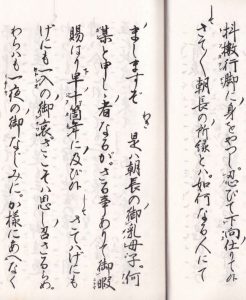 抖擻行脚に身をやつし。忍びて下向仕りて候
さて〳〵朝長の所縁とハ。如何なる人にて
ましますぞ 是ハ朝長の御乳母子。何
某と申しゝ者なるが。さる事ありて御暇
賜はり早十箇年に及び候 さてハげにも
げにも一入の御哀さこそハ思し召さるらめ。
わらハも一夜の御なじみに。か様にあへなく